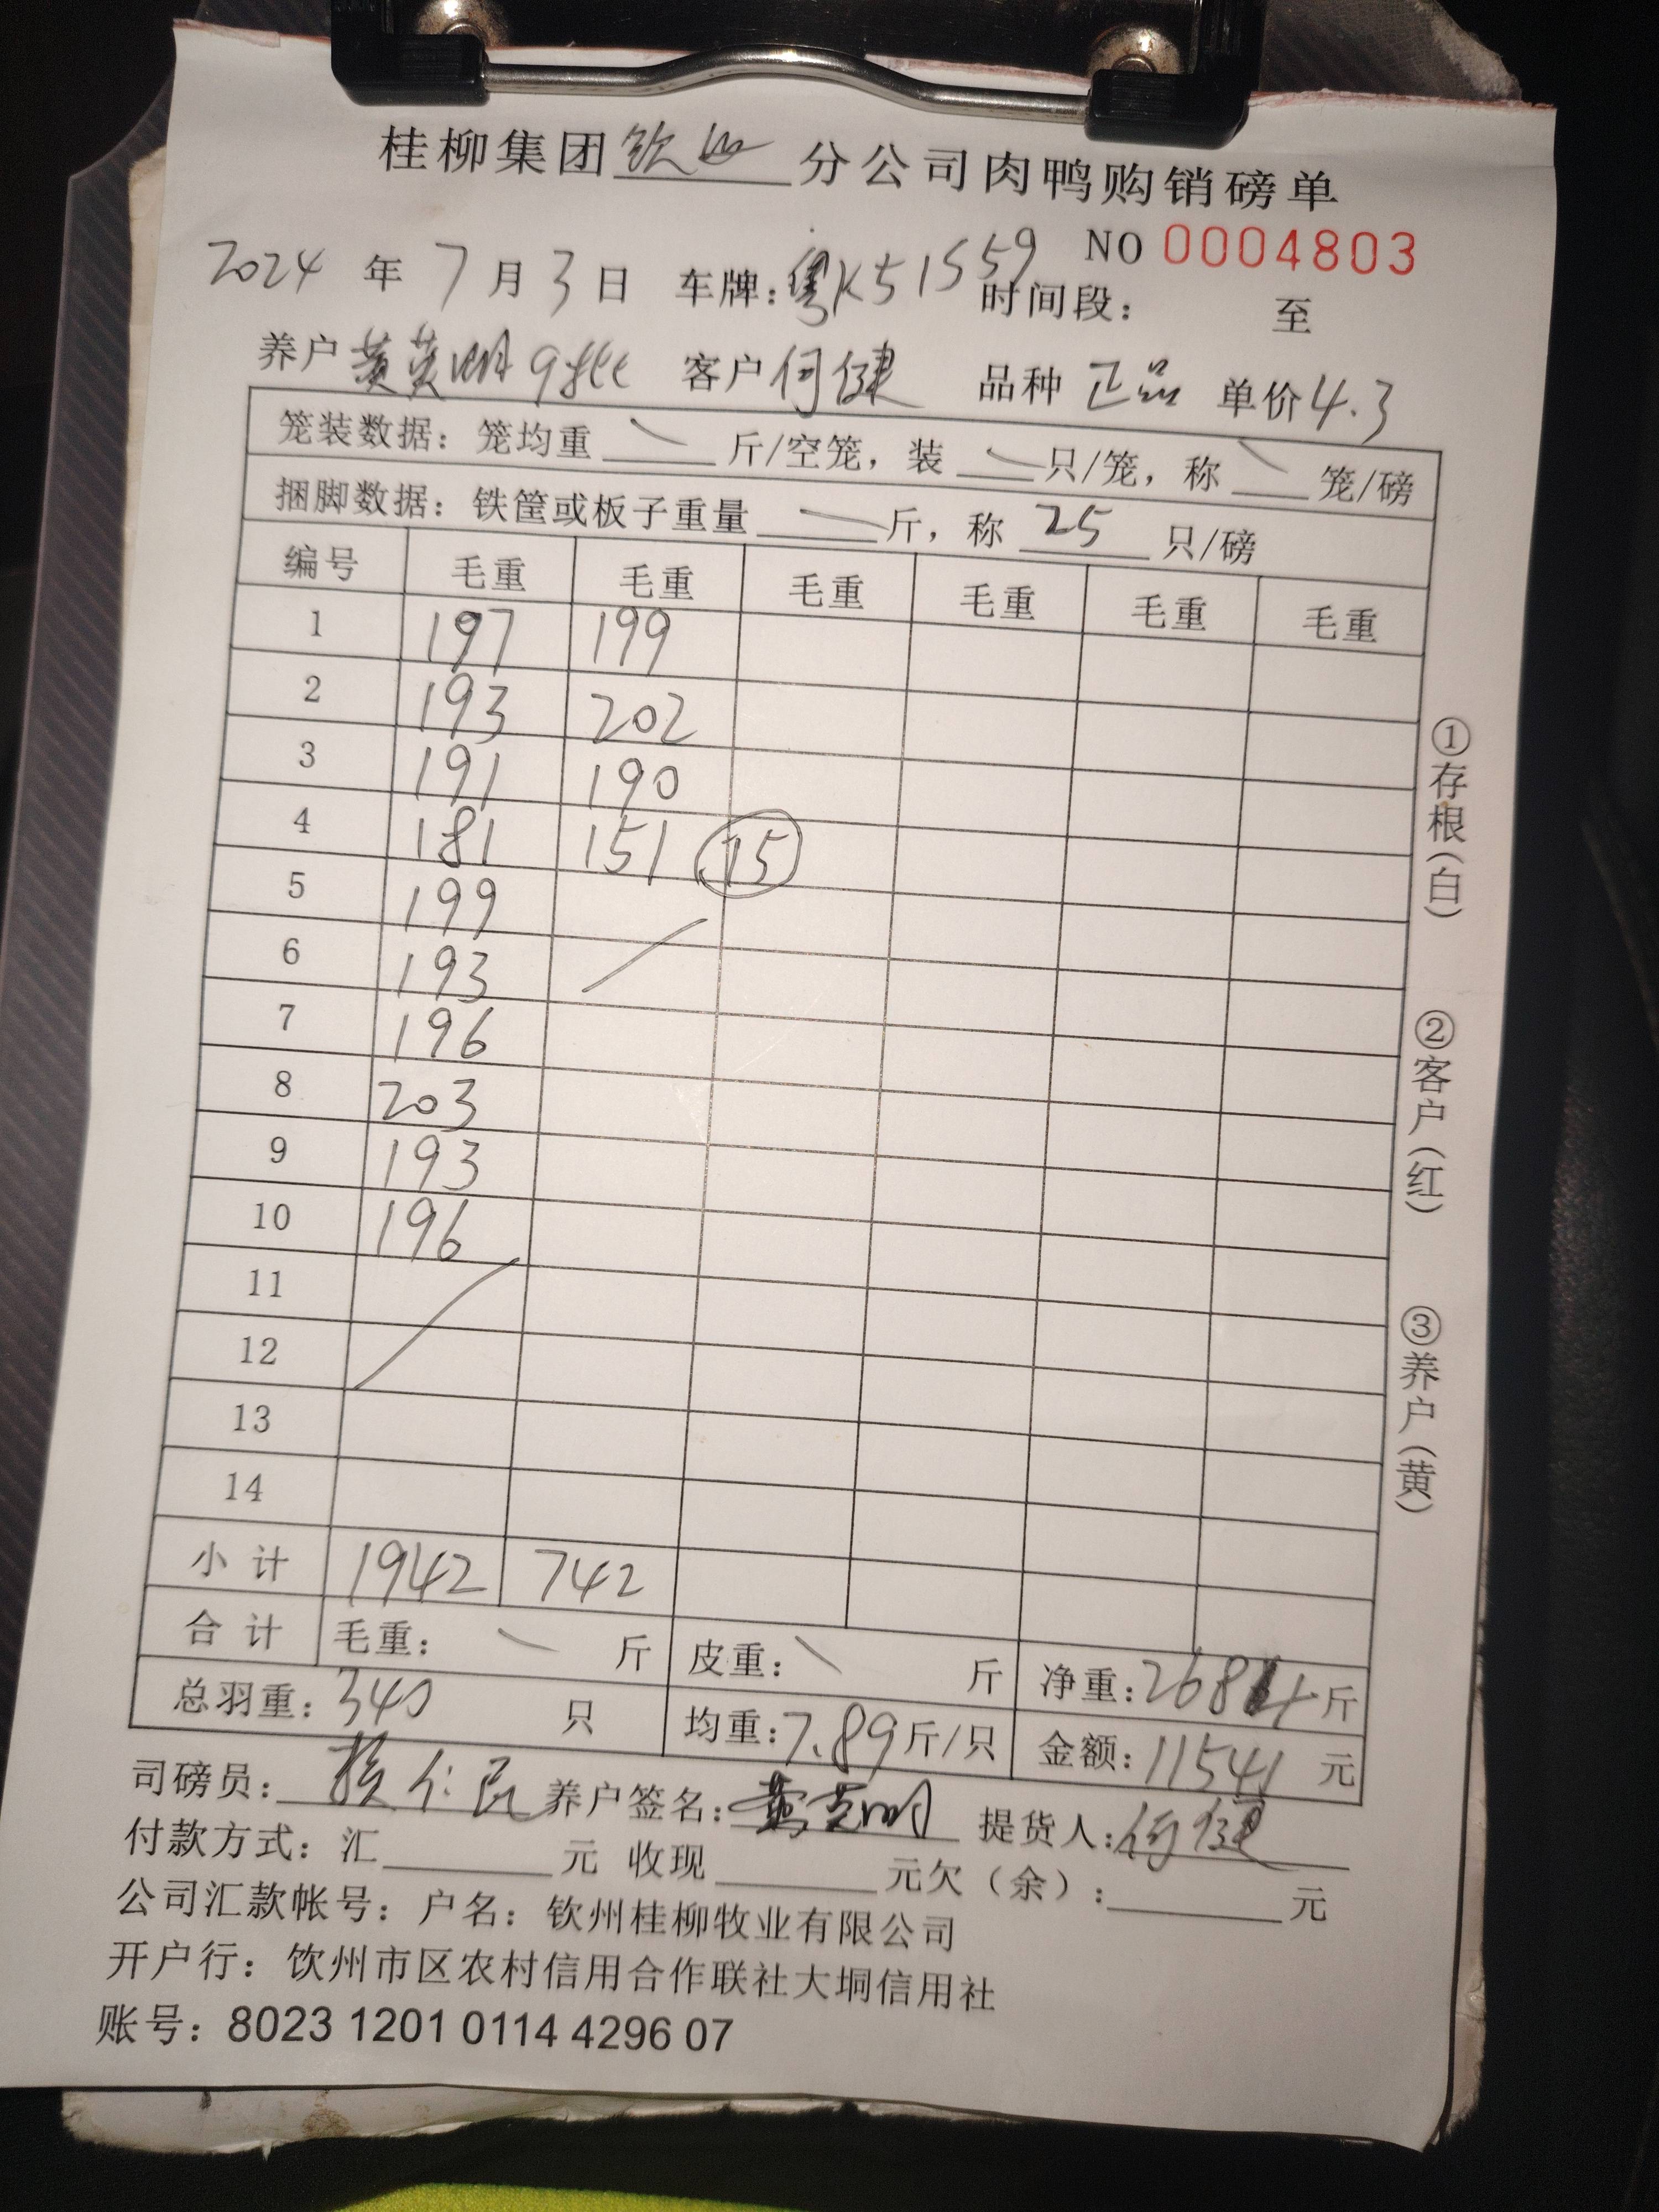 桂柳集团钦州分公司肉鸭购销磅单
NO 0004803
2024 年 7 月 3 日 车牌:粤K51559 时间段: 至
养户 黄英明 9批 客户 何健 品种 正品 单价 4.3
笼装数据: 笼均重 \ 斤/空笼, 装 \ 只/笼, 称 \ 笼/磅
捆脚数据: 铁筐或板子重量 \ 斤, 称 25 只/磅
编号 毛重 毛重 毛重 毛重 毛重 毛重
1 197 199
2 193 202
3 191 190
4 181 151 15
5 199
6 193
7 196
8 203
9 193
10 196
11
12
13
14
小计 1942 742
合计 毛重: \ 斤 皮重: \ 斤 净重: 2684 斤
总羽重: 340 只 均重: 7.89 斤/只 金额: 11541 元
司磅员: 仁民 养户签名: 黄英明 提货人: 何健
付款方式: 汇 元 收现 元欠(余): 元
公司汇款帐号: 户名: 钦州桂柳牧业有限公司
开户行: 钦州市区农村信用合作联社大垌信用社
账号: 8023 1201 0114 4296 07
①存根(白)
②客户(红)
③养户(黄)